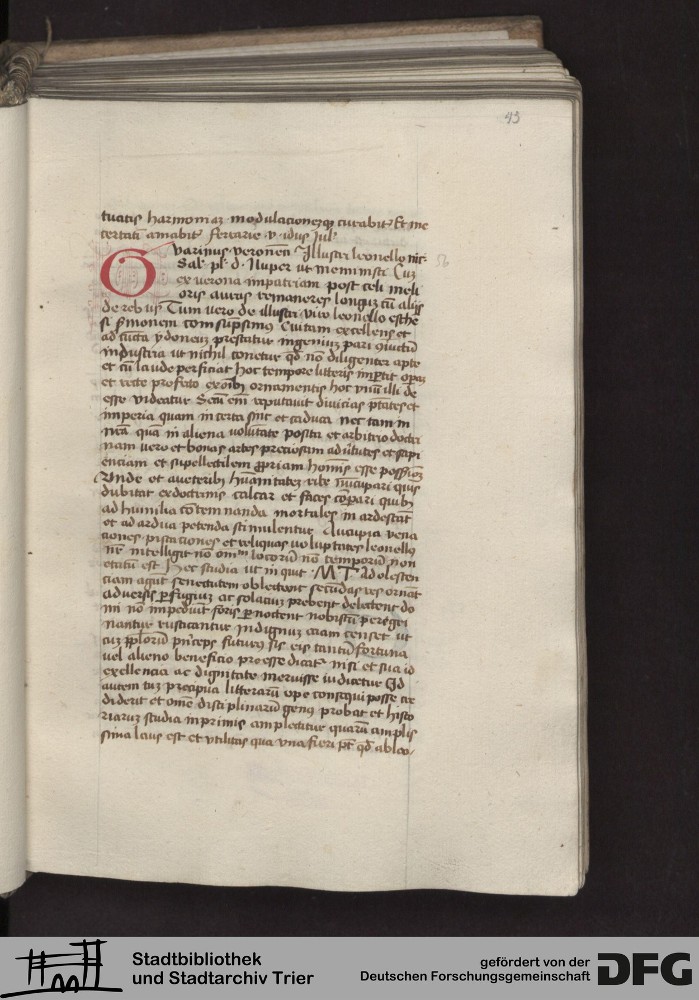 43
tuatis harmonias modulacionesqꝫ curabit Et me
certati amabit ferrarie · v · idus Jul'
Guarinus veronen̄ Illustri leonello
Sal' pl' · d · Nuper ut meministi Cuꝫ
56
ex verona in patriam post celi meli
oris auras remaneres longuꝫ cū alijs
de rebus Tum vero de illustri viro leonello esthē
si s̄monem comsūpsimus Cui tam excellens et
ad cūcta ydoneuꝫ prestatur ingeniuꝫ pari
industria ut nichil conetur qd̄ nō diligenter apte
et cū laude perficiat hoc tempore litteris īp̄tit opaꝫ
et recte profecto ex oībꝫ ornamentis hoc vnū illi de
esse videatur Sciū em̄ reputauit diuicias p̄tates et
imperia quam incerta sint et caduca nec tam in
nr̄a quā in aliena volūtate posita et arbitrio doctri
nam vero et bonas artes preciosam ad v̄tutes et sapi
enciam et supellectilem p̄priam hoīnis esse possessionē
Unde et a veteribꝫ hūanitateꝫ rite nūcupari quis
dubitat ex doctrinis calcar et faces cōpari quibꝫ
ad humilia cōtemnanda mortales inardescāt
et ad ardua petenda stimulentur Aucupia vena
ciones piscaciones et reliquas voluptates leonellꝫ
nr̄ intelligit nō om̄ locorū nō temporū non
etatū est Hec studia ut inquit · M T · adolescen
ciam agūt senectutem oblectant secūdas res ornāt
aduersis p̄fugiuꝫ ac solaciuꝫ prebent delectant do
mi nō impediūt foris p̄noctent nobiscū peregri
nantur rusticantur Indignuꝫ eciam censet ut
cuꝫ pp̄lorū prīceps futurus sis eis tantū fortuna
uel alieno beneficio preesse dicat nisi et sua id
excellencia ac dignitate meruisse iudicetur Id
autem tuꝫ precipua litterarū ope consequi posse cre
diderit et om̄e disciplinarū genus probat et histo
riaruꝫ studia inprimis amplectitur quarū amplis
sima laus est et vtilitas qua vna fieri pt̄ qd̄ ab leo-
Stadtbibliothek
und Stadtarchiv Trier
gefördert von der
Deutschen Forschungsgemeinschaft
DFG